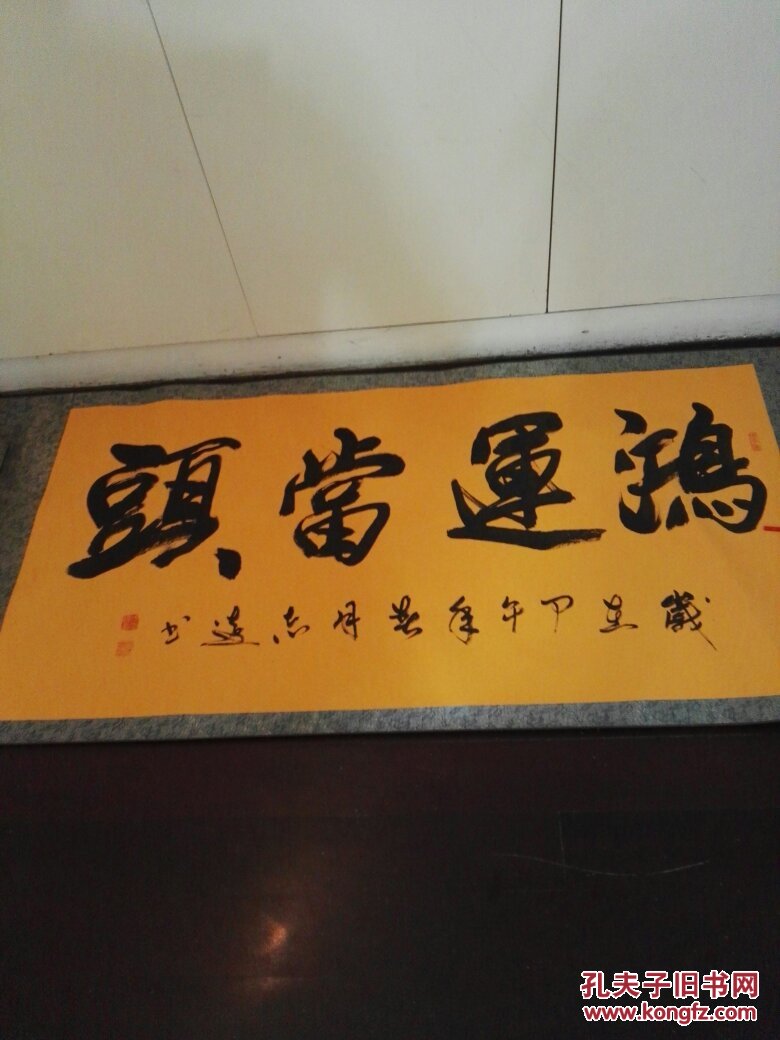 鴻運當頭
歲在甲午年春月志達书
孔夫子旧书网
www.kongfz.com